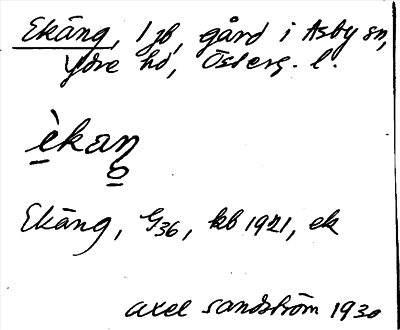 Ekäng, 1 jb, gård i Asby sn,
Ydre hd, Österg. l.
èkaŋ
Ekäng, G36, kb 1921, ek
Axel Sandström 1930